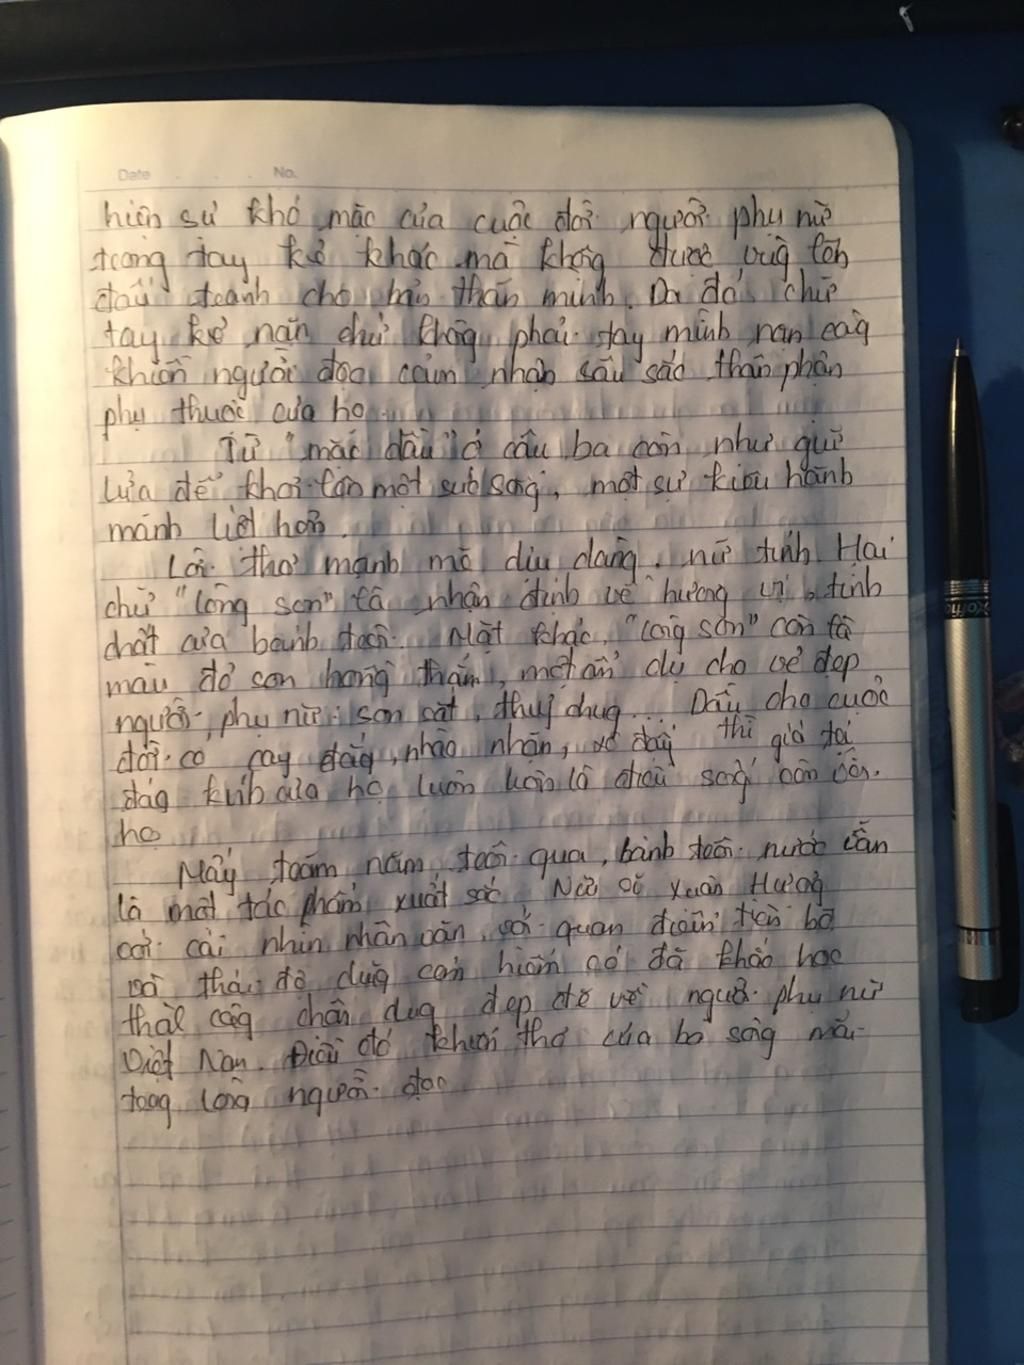 Date No.
hiện sự khó mặc của cuộc đời người phụ nữ
trong tay kẻ khác mà không được vùng lên
đấu tranh cho bản thân mình. Do đó, chữ
tay kẻ nặn chứ không phải tay mình nặn càng
khiến người đọc cảm nhận sâu sắc thân phận
phụ thuộc của họ.
Từ "mặc dầu" ở câu ba còn như giữ
lửa để khơi lên một sức sống, một sự kiêu hãnh
mãnh liệt hơn.
Lời thơ mạnh mẽ dịu dàng, nữ tính Hai
chữ "lòng son" là nhận định về hương vị, tính
chất của bánh trôi. Mặt khác, "lòng son" còn là
màu đỏ son hồng thắm, một ẩn dụ cho vẻ đẹp
người phụ nữ: son sắt, thuỷ chung... Dẫu cho cuộc
đời có cay đắng, nhào nhặn, xô đẩy thì giá trị
đáng kính của họ luôn luôn là điều sống còn với
họ
Mấy trăm năm trôi qua, bánh trôi nước vẫn
là một tác phẩm xuất sắc. Nữ sĩ Xuân Hương
với cái nhìn nhân văn, với quan điểm tiến bộ
và thái độ dũng cảm hiếm có đã khắc hoạ
thành công chân dung đẹp đẽ về người phụ nữ
Việt Nam. Điều đó khiến thơ của bà sống mãi
trong lòng người đọc